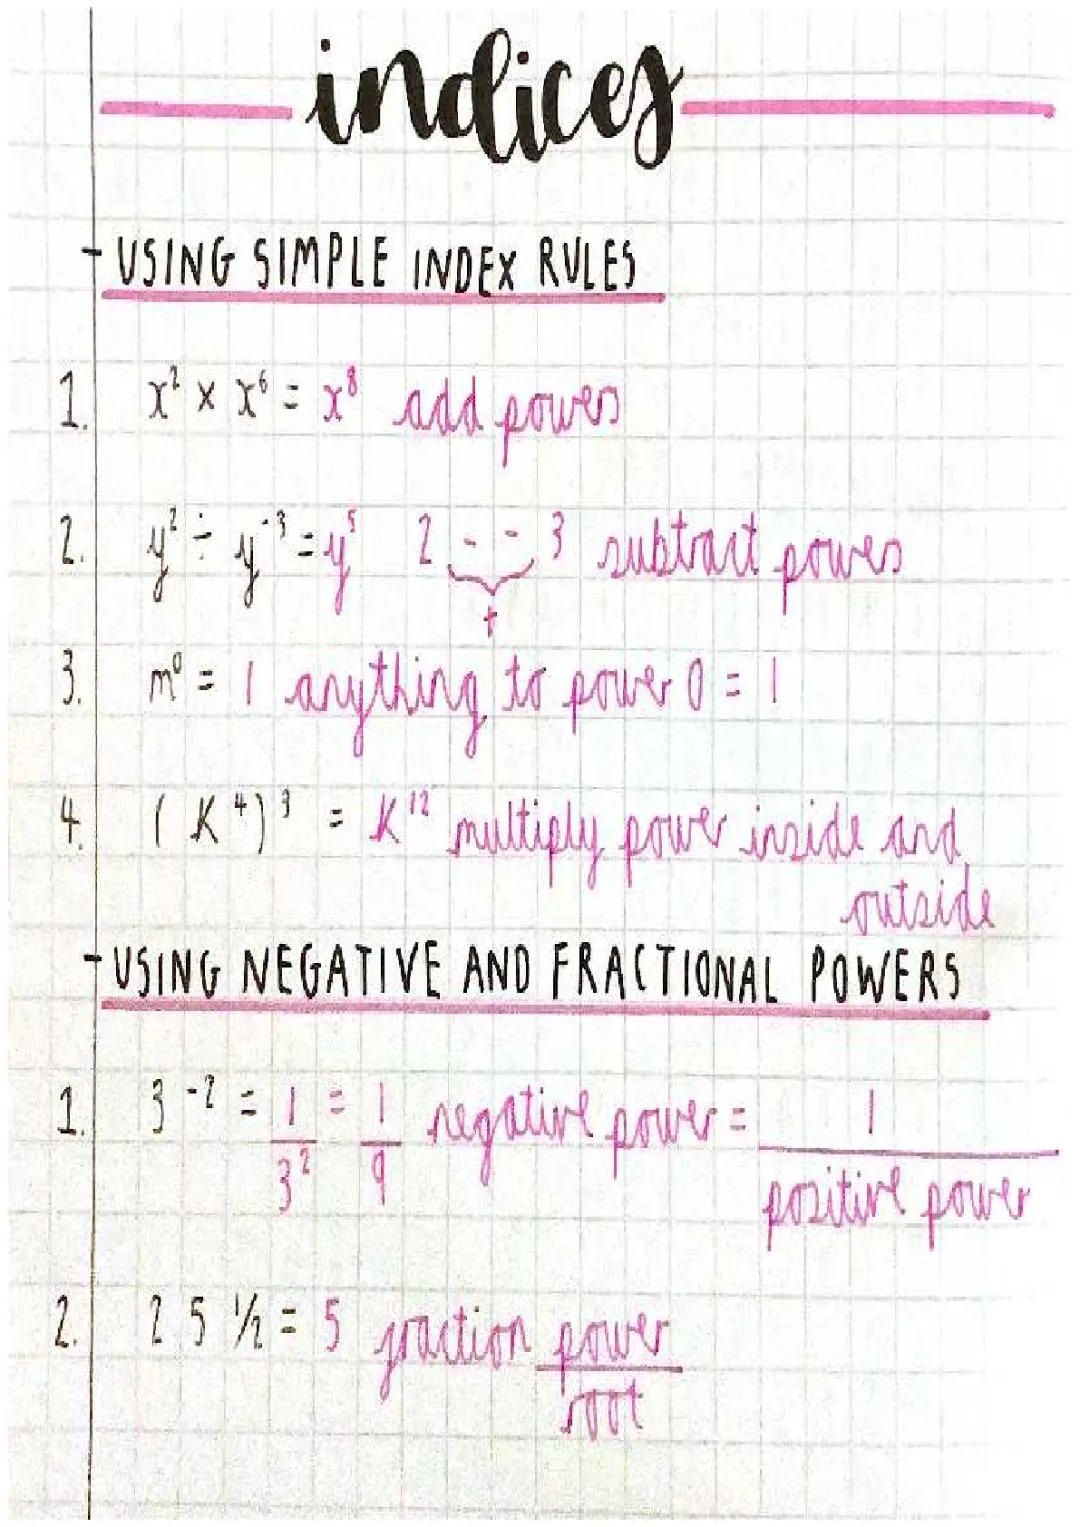 indices
- USING SIMPLE INDEX RULES
1. x² × x⁶ = x⁸ add powers
2. y² ÷ y⁻³ = y⁵ 2 - - 3 subtract powers
+
3. m⁰ = 1 anything to power 0 = 1
4. (K⁴)³ = K¹² multiply power inside and
outside
- USING NEGATIVE AND FRACTIONAL POWERS
1. 3⁻² = 1/3² = 1/9 negative power = 1/positive power
2. 25 ½ = 5 fraction power/root